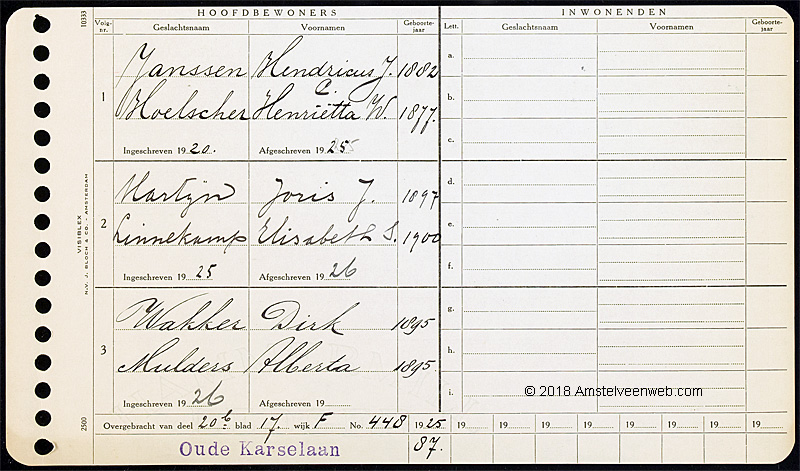 HOOFDBEWONERS INWONENDEN
Volg-nr. Geslachtsnaam Voornamen Geboorte-jaar Lett. Geslachtsnaam Voornamen Geboorte-jaar
10333
1
Janssen Hendricus J. 1882
C.
Hoelscher Henriëtta W. 1877.
Ingeschreven 1920. Afgeschreven 1925
a.
b.
c.
2
Martijn Joris J. 1897
Linnekamp Elisabeth S. 1900
Ingeschreven 1925 Afgeschreven 1926
d.
e.
f.
3
Wakker Dirk 1895
Mulders Alberta 1895.
Ingeschreven 1926 Afgeschreven 19
g.
h.
i.
VISIBLEX
N.V. J. BLOCH & CO. - AMSTERDAM
2500
© 2018 Amstelveenweb.com
Overgebracht van deel 20b blad 17. wijk F No. 448 1925 19 19 19 19 19 19 19 19
Oude Karselaan 87.